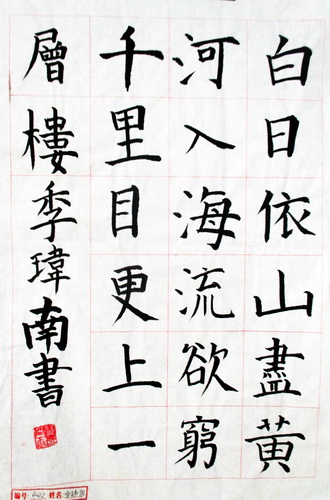 白日依山盡黃
河入海流欲窮
千里目更上一
層樓季瑋南書
編号: 姓名: